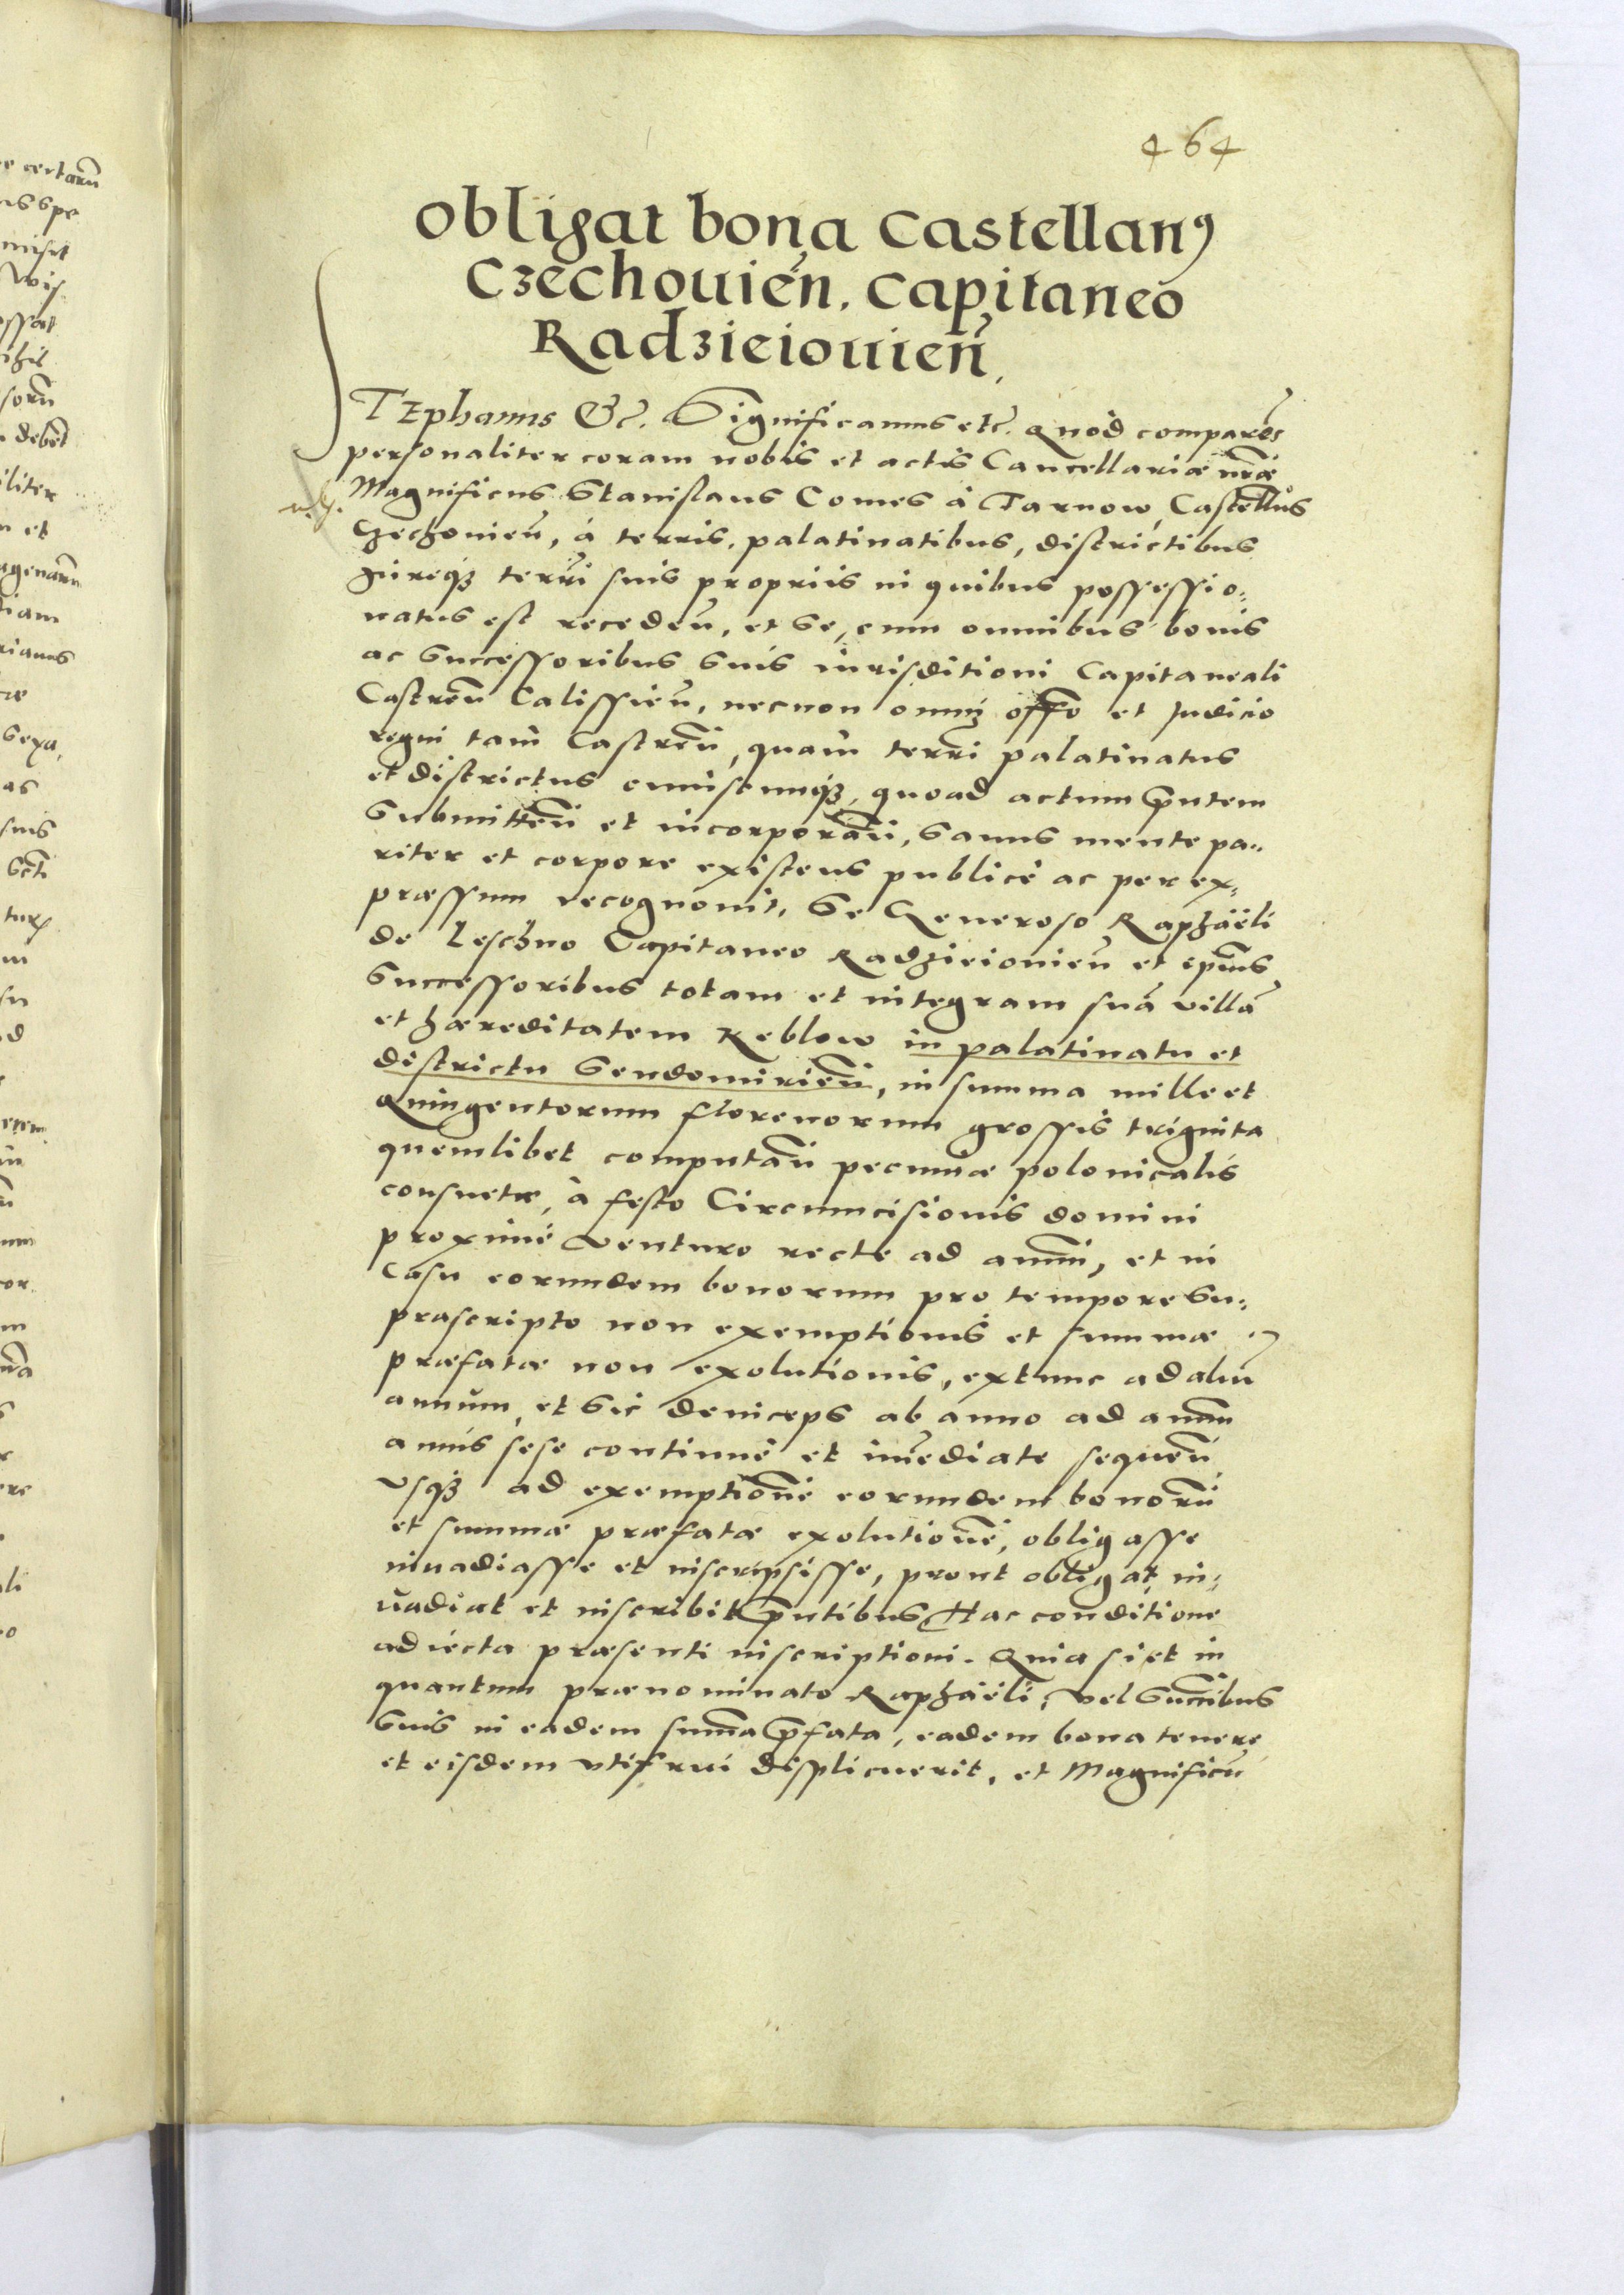 464
Obligat bona Castellanꝰ
Czechouień. Capitaneo
Radzieiouień.
STEphanus &c. Significamus etc̃. Quod comparēs
personaliter coram nobis et actis Cancellariæ nr̃æ
Magnificus Stanislaus Comes à Tarnow, Castellꝰus
Czechouień, à terris, palatinatibus, districtibus
Jureqꝫ terr̃i suis propriis in quibus possessio:
natus est receden̄, et se, cum omnibus bonis
ac Successoribus suis iurisditioni Capitaneali
Castren̄ Calissień, necnon omnj offo et Judicio
regni tam Castren̄, quam terr̃i palatinatus
et districtus cuiuscunqꝫ, quoad actum p̃ntem
Submitten̄ et incorporan̄, sanus mente pa„
riter et corpore existens publicè ac per ex„
præssum recognouit, Se Generoso Raphaëli
de Leschno Capitaneo Radzieiouień et ipsius
Successoribus totam et integram suā villā
et hæreditatem Reblow in palatinatu et
districtu Sendomirień, in summa mille et
Quingentorum florenorum grossis triginta
quemlibet computan̄ pecuniæ polonicalis
consuetæ, à festo Circumcisionis domini
proximè venturo recte ad annū, et in
Casu eorundem bonorum pro tempore su:
prascripto non exemptionis et summæ
præfatæ non exolutionis, extunc ad aliū
annum, et sic deinceps ab anno ad annū
annis sese continuè et im̄ediate sequen̄
vsqꝫ ad exemptionē eorundem bonorū
et summæ præfatæ exolutionē, obligasse
inuadiasse et inscripsisse, prout obligat, in:
uadiat et inscribit p̃ntibus Hac conditione
adiecta præsenti inscriptioni. Quia si et in
quantum prænominato Raphaëli, vel Succ̃ibus
suis in eadem sum̄a p̃fata, eadem bona tenere
et eisdem vtifrui displicuerit, et Magnificū